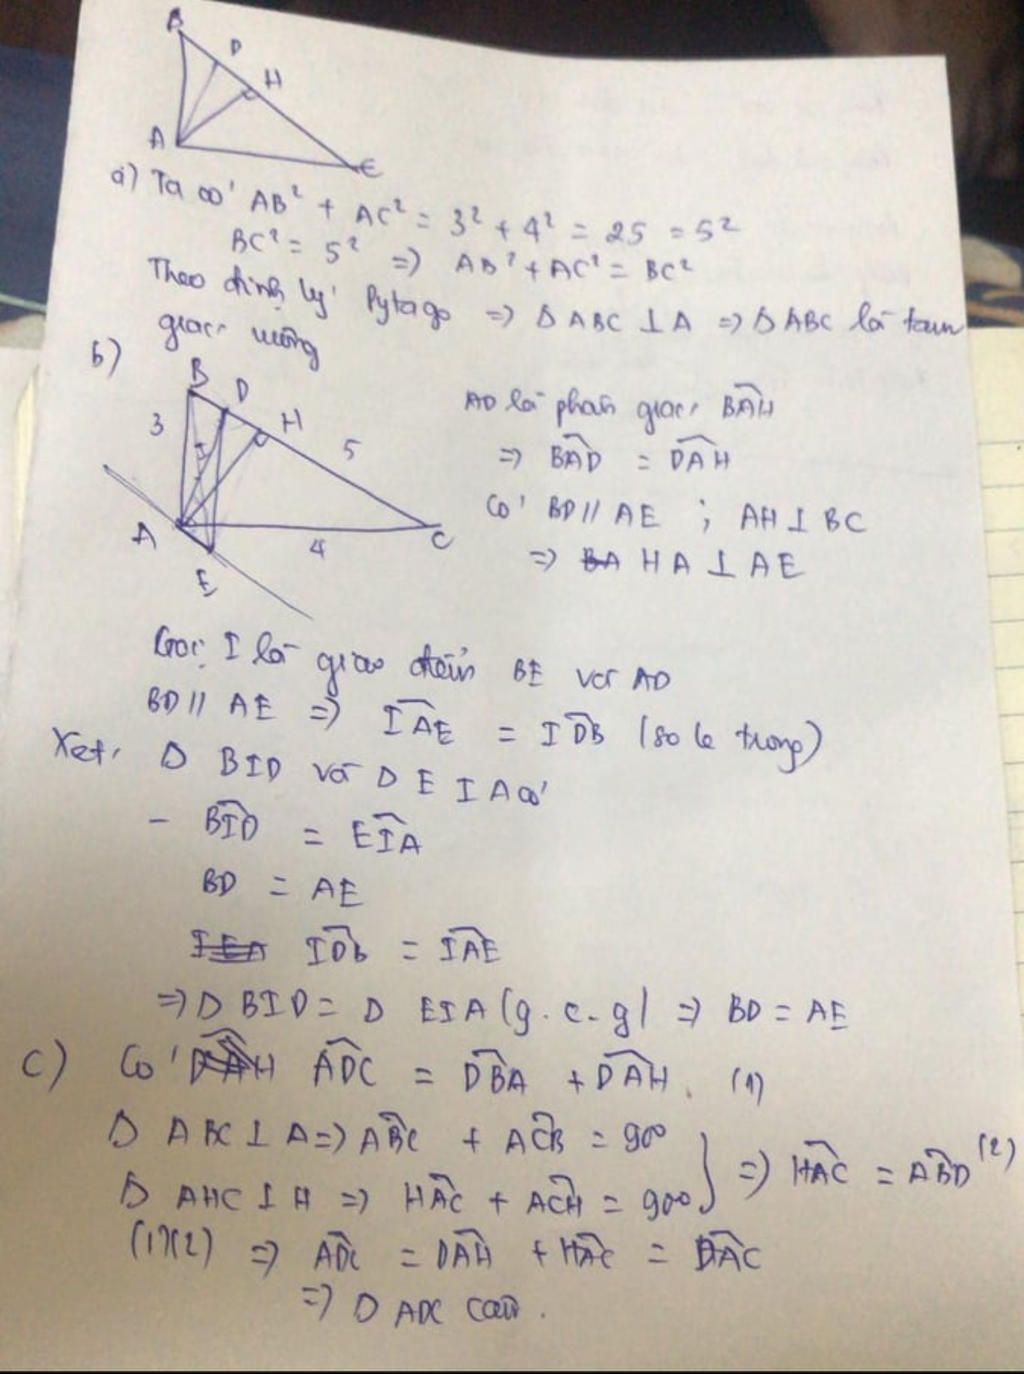 B
D
H
A
C
a) Ta có AB² + AC² = 3² + 4² = 25 = 5²
BC² = 5² => AB² + AC² = BC²
Theo định lý Pytago => Δ ABC ⊥ A => Δ ABC là tam
giác vuông
b)
B
D
H
3
5
I
A
4
C
E
AD là phân giác BAH
=> BAD = DAH
Có BD // AE ; AH ⊥ BC
=> HA ⊥ AE
Gọi I là giao điểm BE với AD
BD // AE => IAE = IDB (so le trong)
Xét Δ BID và Δ EIA có
- BID = EIA
BD = AE
IDB = IAE
=> Δ BID = Δ EIA (g.c.g) => BD = AE
c) Có ADC = DBA + DAH. (1)
Δ ABC ⊥ A => ABC + ACB = 90°
Δ AHC ⊥ H => HAC + ACH = 90° } => HAC = ABD (2)
(1)(2) => ADC = DAH + HAC = DAC
=> Δ ADC cân.